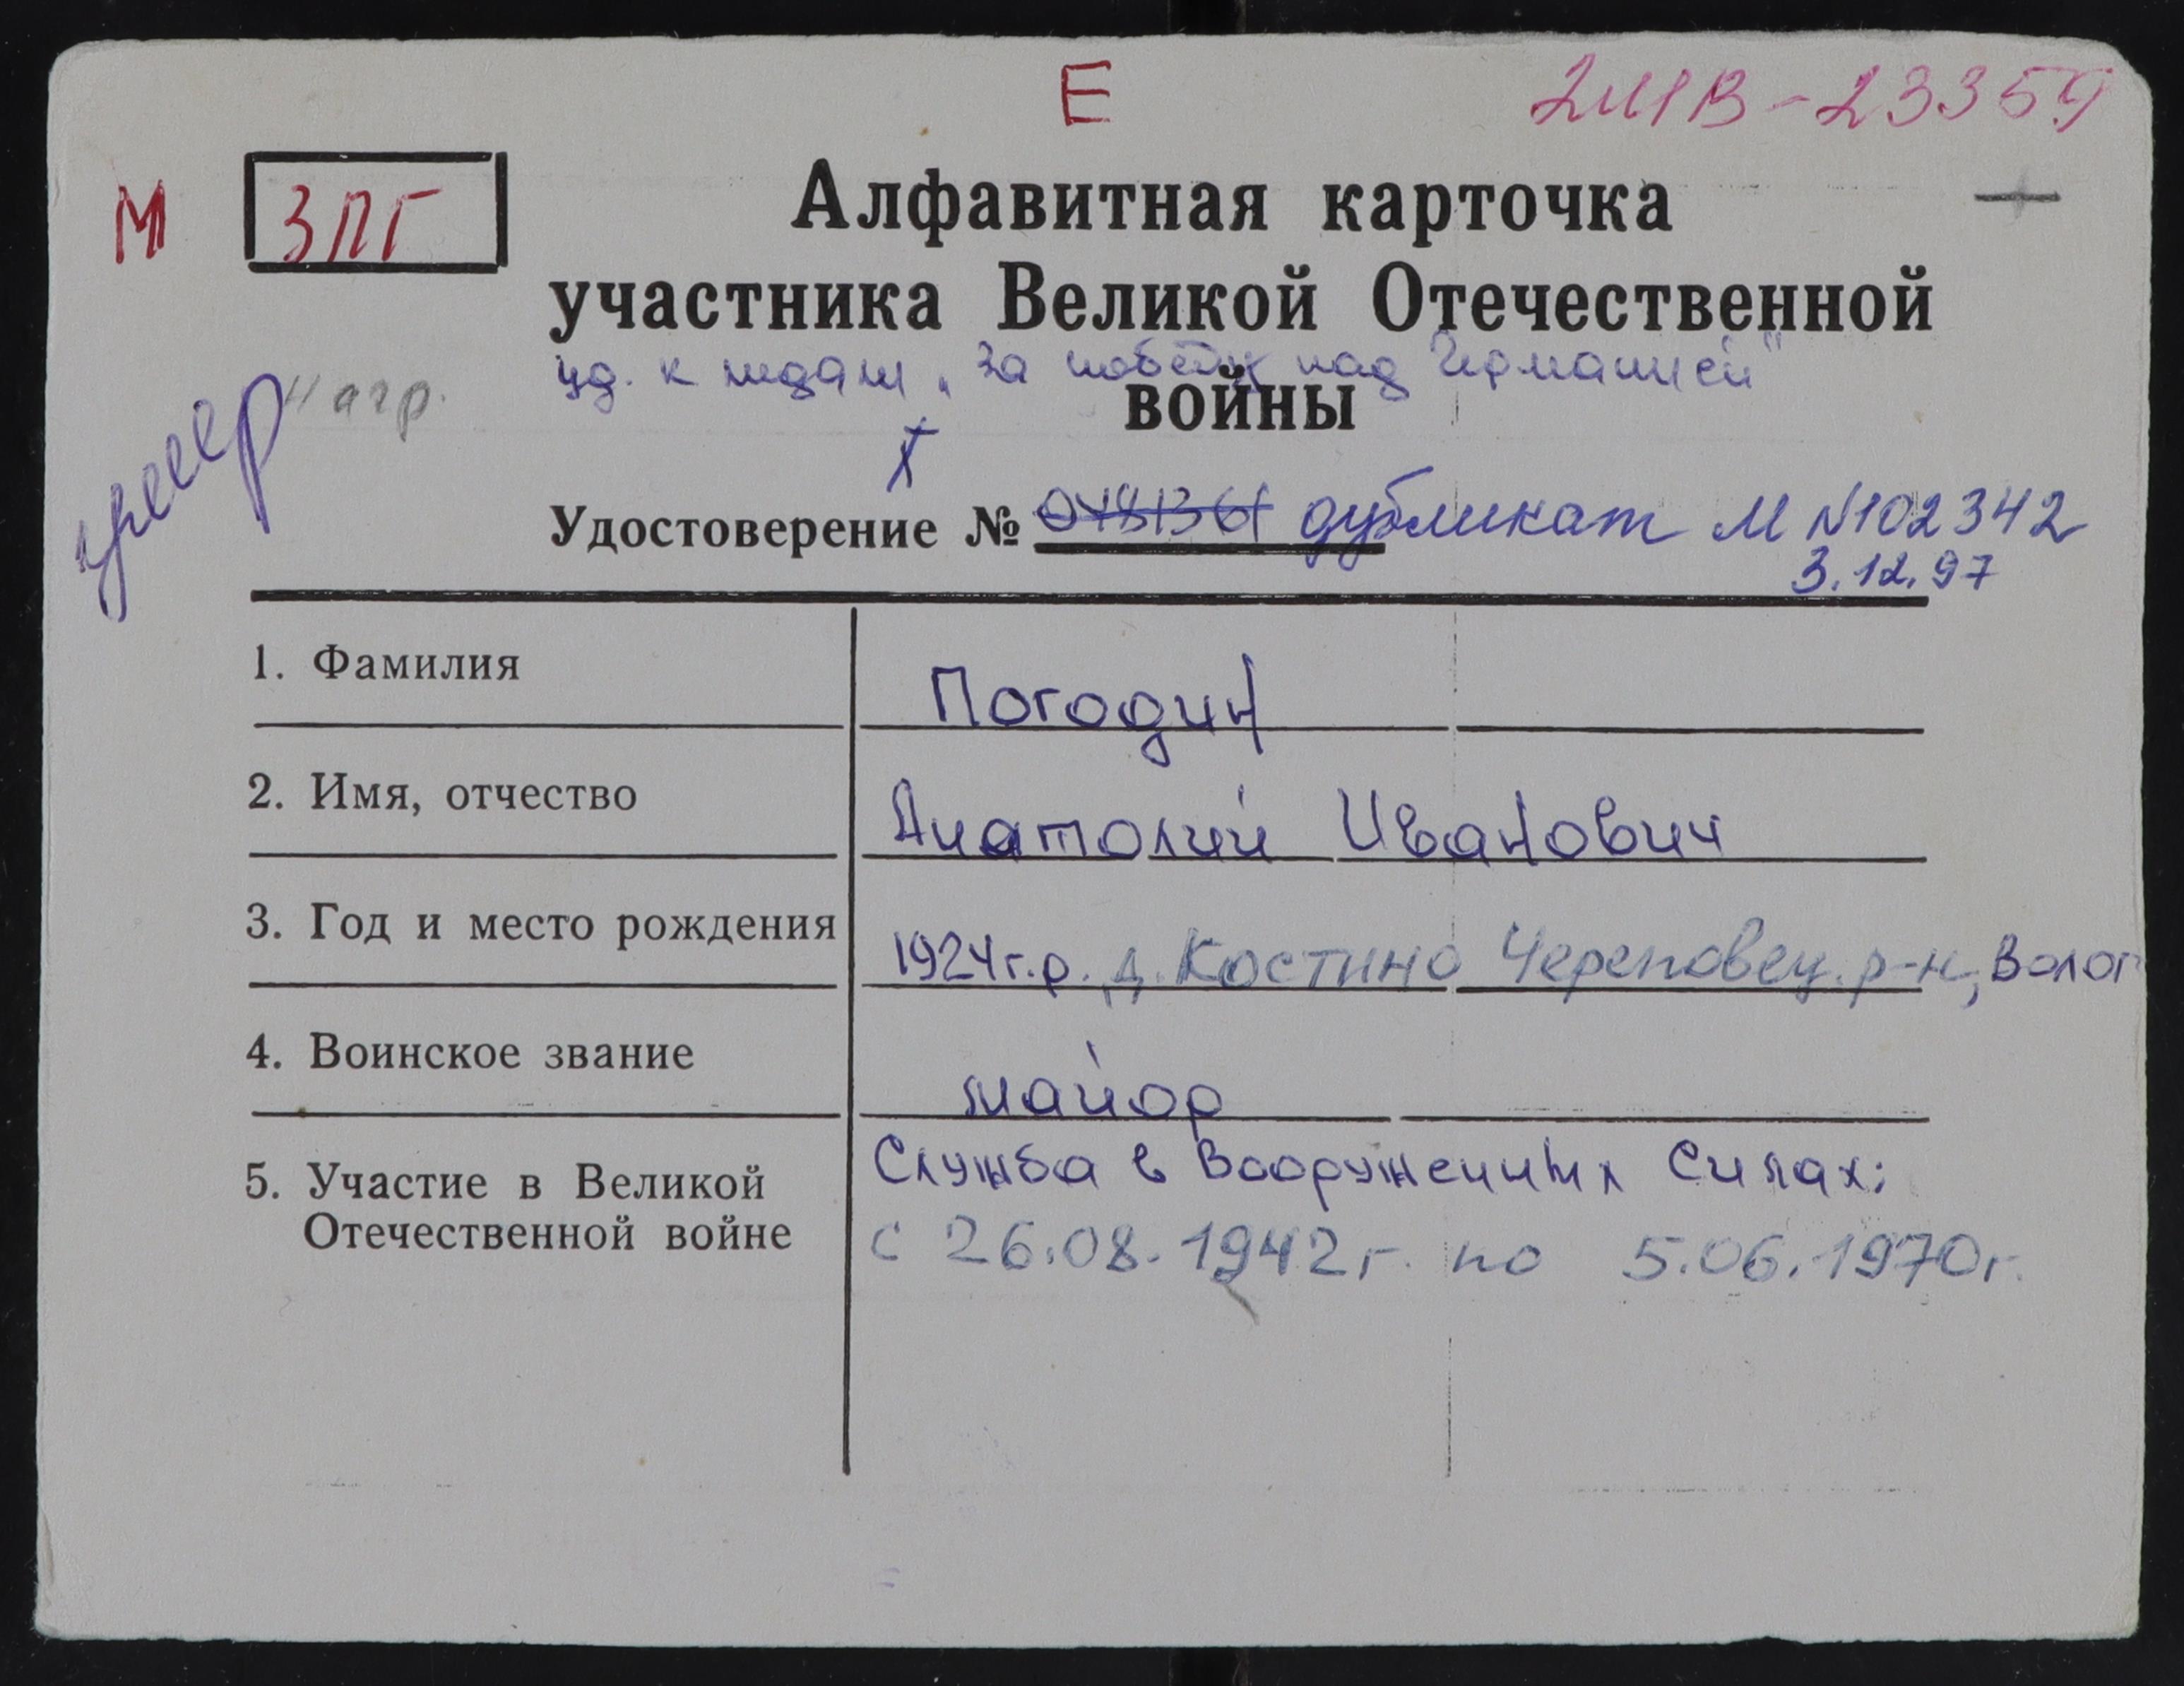 Е
М ЗПГ
Алфавитная карточка
участника Великой Отечественной
уд. к медали „За победу над Германией"
войны
нагр.
умер
Удостоверение № дубликат М №102342
3.12.97
1. Фамилия Погодин
2. Имя, отчество Анатолий Иванович
3. Год и место рождения 1924г.р. д. Костино Череповец. р-н, Волог
4. Воинское звание майор
5. Участие в Великой Служба в Вооруженных Силах:
Отечественной войне с 26.08.1942г. по 5.06.1970г.